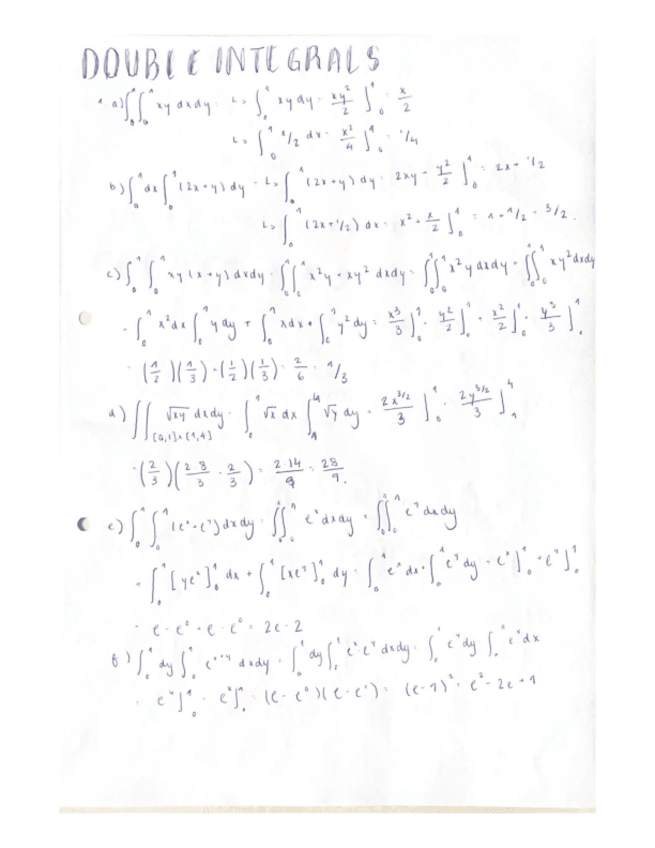 DOUBLE INTEGRALS
1 a) ∫₀¹∫₀¹ xy dxdy = ↳ ∫₀¹ xy dy = xy²/2 ]₀¹ = x/2
↳ ∫₀¹ x/2 dx = x²/4 ]₀¹ = 1/4
b) ∫₀¹ dx ∫₀¹ (2x+y) dy = ↳ ∫₀¹ (2x+y) dy = 2xy + y²/2 ]₀¹ = 2x + 1/2
↳ ∫₀¹ (2x+1/2) dx = x² + x/2 ]₀¹ = 1 + 1/2 = 3/2.
c) ∫₀¹∫₀¹ xy(x+y) dxdy = ∫₀¹∫₀¹ x²y + xy² dxdy = ∫₀¹∫₀¹ x²y dxdy + ∫₀¹∫₀¹ xy² dxdy
= ∫₀¹ x²dx ∫₀¹ y dy + ∫₀¹ xdx + ∫₀¹ y²dy = x³/3 ]₀¹ · y²/2 ]₀¹ + x²/2 ]₀¹ · y³/3 ]₀¹
= (1/2)(1/3) + (1/2)(1/3) = 2/6 = 1/3
d) ∫∫[0,1]x[1,4] √xy dxdy = ∫₀¹ √x dx ∫₁⁴ √y dy = 2x^3/2/3 ]₀¹ · 2y^3/2/3 ]₁⁴
= (2/3)(2·8/3 - 2/3) = 2·14/9 = 28/9.
e) ∫₀¹∫₀¹ (eˣ+eʸ) dxdy = ∫₀¹∫₀¹ eˣ dxdy + ∫₀¹∫₀¹ eʸ dxdy
= ∫₀¹ [yeˣ]₀¹ dx + ∫₀¹ [xeʸ]₀¹ dy = ∫₀¹ eˣ dx + ∫₀¹ eʸ dy = eˣ]₀¹ + eʸ]₀¹
= e - e⁰ + e - e⁰ = 2e - 2
f) ∫₀¹ dy ∫₀¹ eˣ⁺ʸ dxdy = ∫₀¹ dy ∫₀¹ eˣeʸ dxdy = ∫₀¹ eʸdy ∫₀¹ eˣdx
= eʸ]₀¹ · eˣ]₀¹ = (e - e⁰)(e - e⁰) = (e-1)² = e² - 2e + 1